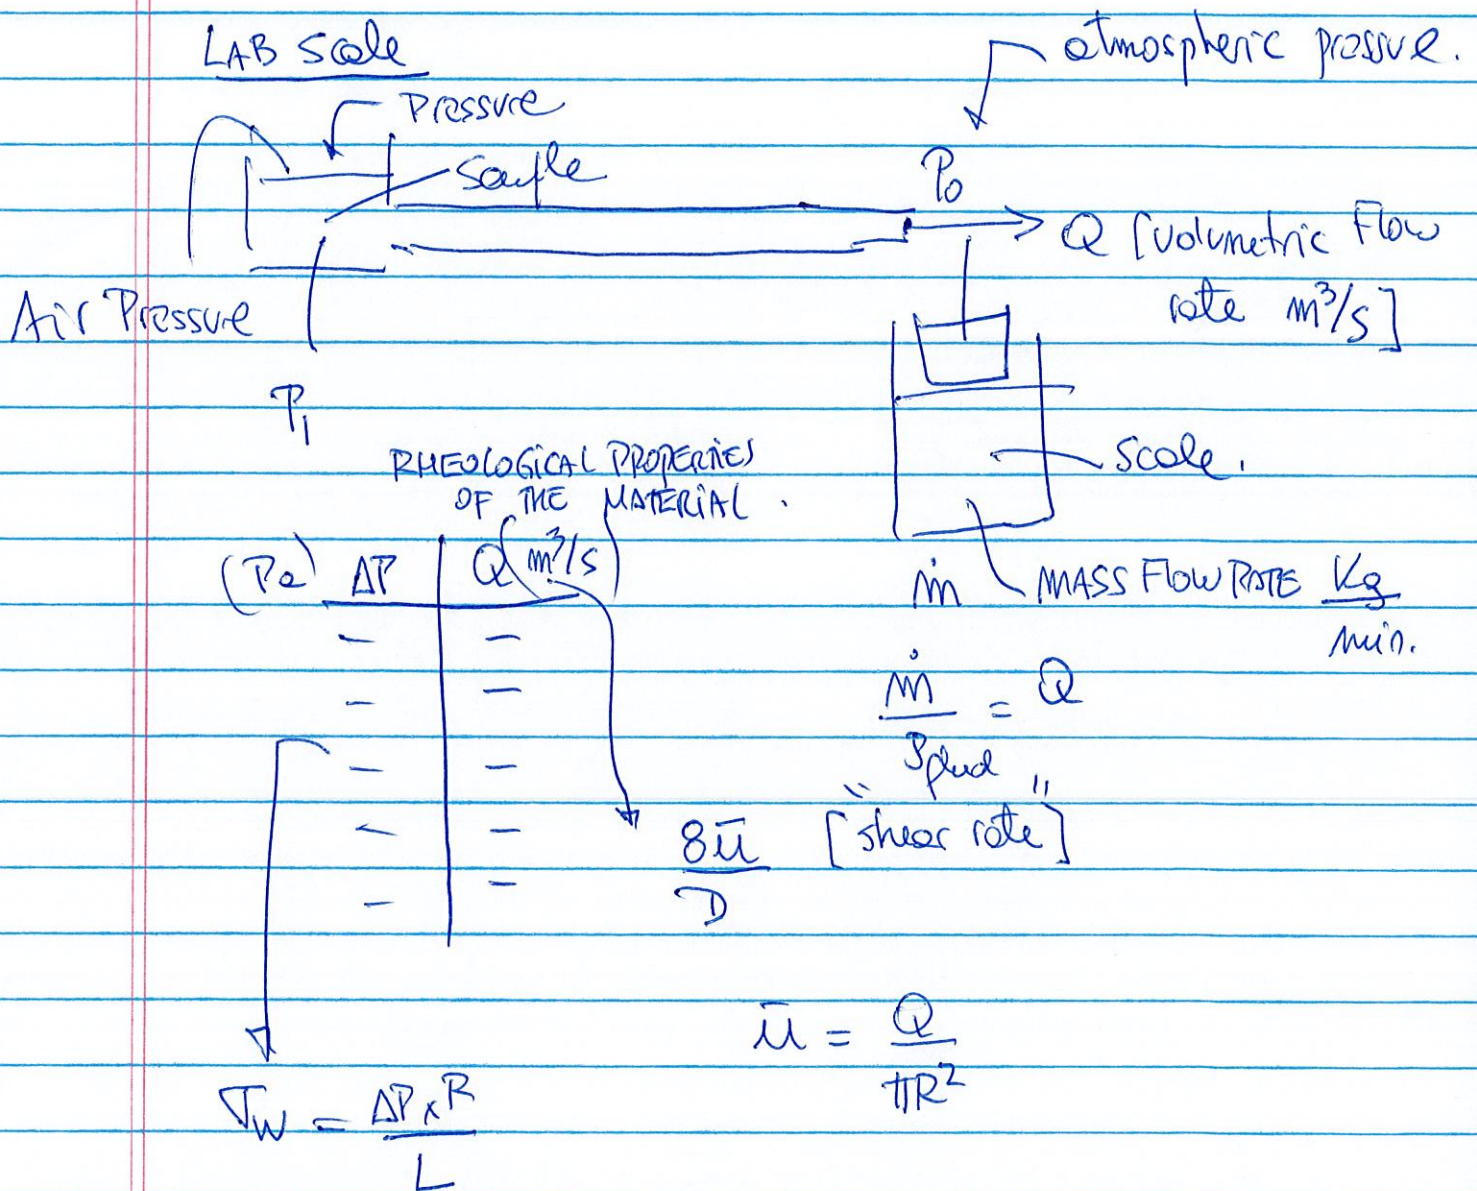 LAB scale
atmospheric pressure.
Pressure
Sample
P0
Q [volumetric Flow
rate m³/s]
Air Pressure
P1
scale.
RHEOLOGICAL PROPERTIES
OF THE MATERIAL.
(Pa) ΔP | Q (m³/s)
ṁ MASS FLOW RATE Kg/min.
ṁ/ρfluid = Q
8ū/D ["shear rate"]
ū = Q/πR²
σW = ΔP x R/L